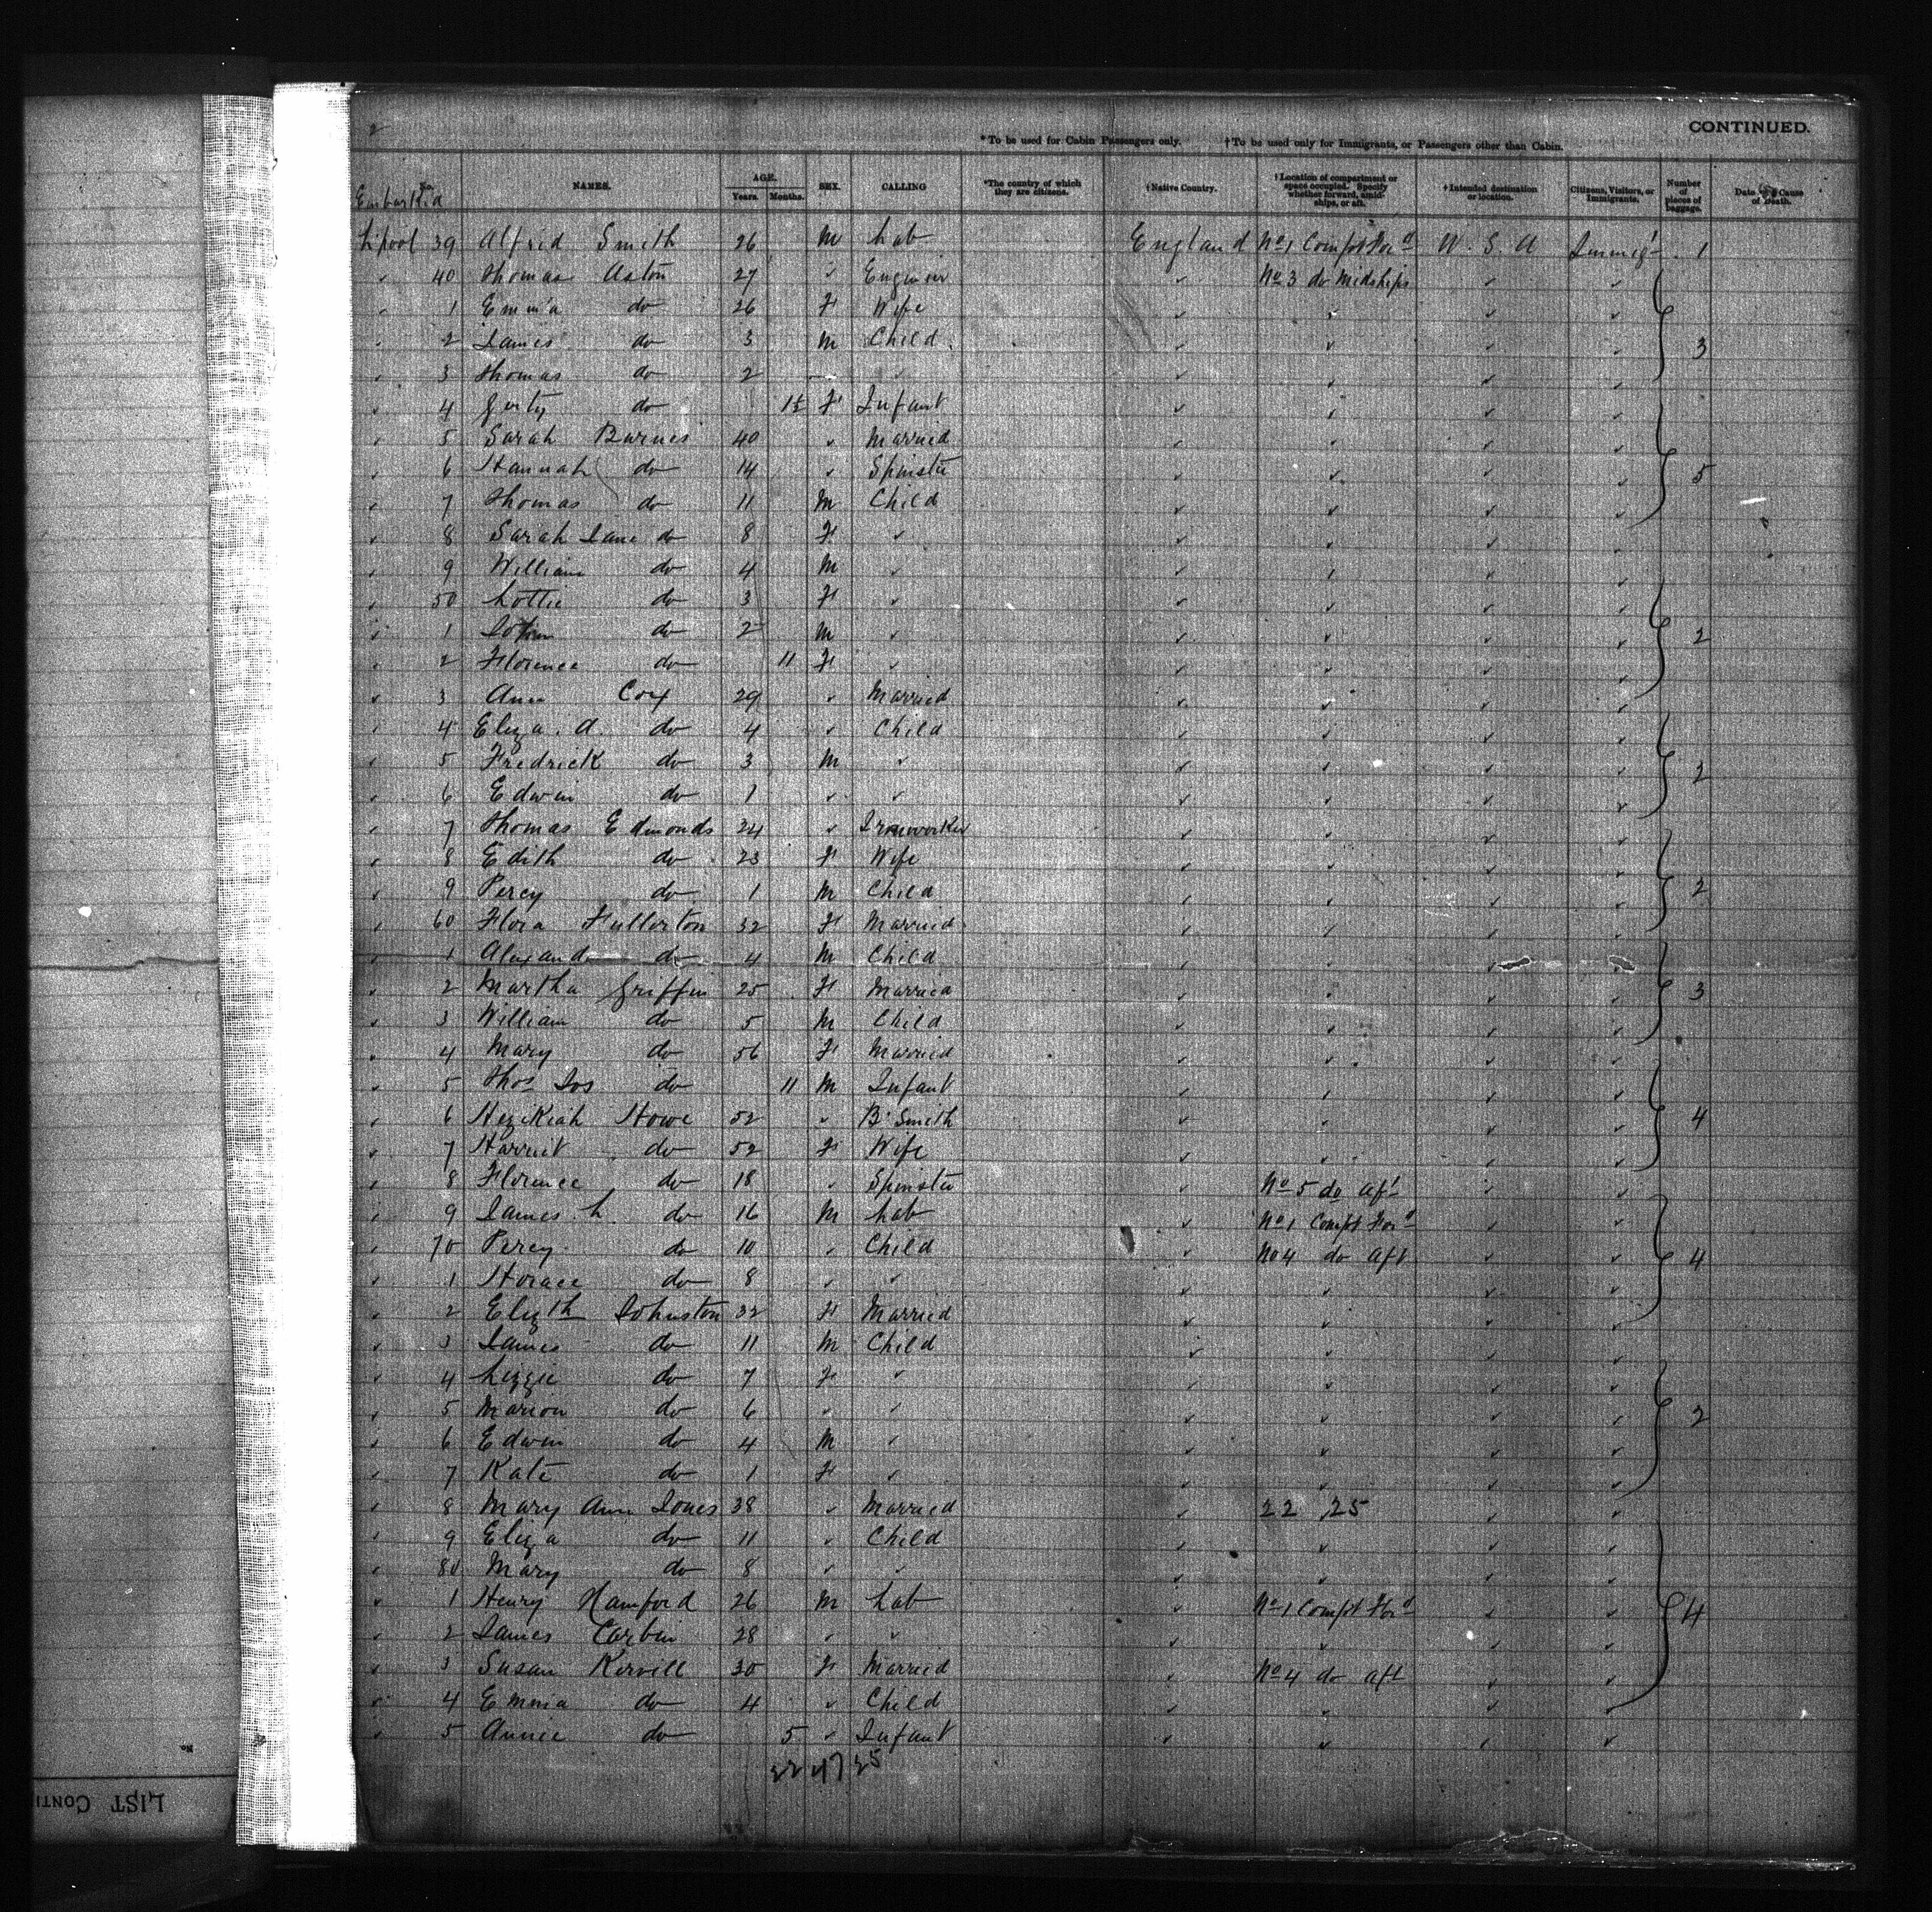 CONTINUED.
* To be used for Cabin Passengers only. † To be used only for Immigrants, or Passengers other than Cabin.
No. NAMES. AGE. Years. Months. SEX. CALLING *The country of which they are citizens. †Native Country. †Location of compartment or space occupied. Specify whether forward, amidships, or aft. †Intended destination or location. Citizens, Visitors, or Immigrants. Number of pieces of baggage. Date & Cause of Death.
Embarked
L'pool 39 Alfred Smith 26 M Lab England No 1 Compt For'd U.S.A Immigt 1
✓ 40 Thomas Aston 27 ✓ Engineer ✓ No 3 do Midships ✓ ✓
✓ 1 Emma do 26 F Wife ✓ ✓ ✓ ✓
✓ 2 James do 3 M Child ✓ ✓ ✓ ✓ 3
✓ 3 Thomas do 2 ✓ ✓ ✓ ✓ ✓
✓ 4 Gerty do 1½ F Infant ✓ ✓ ✓ ✓
✓ 5 Sarah Burnes 40 ✓ Married ✓ ✓ ✓ ✓
✓ 6 Hannah do 14 ✓ Spinster ✓ ✓ ✓ ✓ 5
✓ 7 Thomas do 11 M Child ✓ ✓ ✓ ✓
✓ 8 Sarah Jane do 8 F ✓ ✓ ✓ ✓ ✓
✓ 9 William do 4 M ✓ ✓ ✓ ✓ ✓
✓ 50 Lottie do 3 F ✓ ✓ ✓ ✓ ✓
✓ 1 John do 2 M ✓ ✓ ✓ ✓ ✓ 2
✓ 2 Florence do 11 F ✓ ✓ ✓ ✓ ✓
✓ 3 Ann Cox 29 ✓ Married ✓ ✓ ✓ ✓
✓ 4 Eliza. A. do 4 ✓ Child ✓ ✓ ✓ ✓
✓ 5 Fredrick do 3 M ✓ ✓ ✓ ✓ ✓ 2
✓ 6 Edwin do 1 ✓ ✓ ✓ ✓ ✓ ✓
✓ 7 Thomas Edmonds 24 ✓ Ironworker ✓ ✓ ✓ ✓
✓ 8 Edith do 23 F Wife ✓ ✓ ✓ ✓
✓ 9 Percy do 1 M Child ✓ ✓ ✓ ✓ 2
✓ 60 Flora Fullerton 32 F Married ✓ ✓ ✓ ✓
✓ 1 Alexander do 4 M Child ✓ ✓ ✓ ✓
✓ 2 Martha Griffin 25 F Married ✓ ✓ ✓ ✓ 3
✓ 3 William do 5 M Child ✓ ✓ ✓ ✓
✓ 4 Mary do 56 F Married ✓ ✓ ✓ ✓
✓ 5 Thos Jos do 11 M Infant ✓ ✓ ✓ ✓
✓ 6 Hezikiah Howe 52 ✓ B'Smith ✓ ✓ ✓ ✓ 4
✓ 7 Harriet do 52 F Wife ✓ ✓ ✓ ✓
✓ 8 Florence do 18 ✓ Spinster ✓ No 5 do aft ✓ ✓
✓ 9 James L. do 16 M Lab ✓ No 1 Compt For'd ✓ ✓
✓ 70 Percy do 10 ✓ Child ✓ No 4 do aft ✓ ✓ 4
✓ 1 Horace do 8 ✓ ✓ ✓ ✓ ✓ ✓
✓ 2 Elizth Johnston 32 F Married ✓ ✓ ✓ ✓
✓ 3 James do 11 M Child ✓ ✓ ✓ ✓
✓ 4 Lizzie do 7 F ✓ ✓ ✓ ✓ ✓
✓ 5 Marion do 6 ✓ ✓ ✓ ✓ ✓ ✓ 2
✓ 6 Edwin do 4 M ✓ ✓ ✓ ✓ ✓
✓ 7 Kate do 1 F ✓ ✓ ✓ ✓ ✓
✓ 8 Mary Ann Jones 38 ✓ Married ✓ 22 25 ✓ ✓
✓ 9 Eliza do 11 ✓ Child ✓ ✓ ✓ ✓
✓ 80 Mary do 8 ✓ ✓ ✓ ✓ ✓ ✓
✓ 1 Henry Hamford 26 M Lab ✓ No 1 Compt For'd ✓ ✓ 4
✓ 2 James Corbin 28 ✓ ✓ ✓ ✓ ✓ ✓
✓ 3 Susan Kervill 30 F Married ✓ No 4 do aft ✓ ✓
✓ 4 Emma do 4 ✓ Child ✓ ✓ ✓ ✓
✓ 5 Annie do 5 ✓ Infant ✓ ✓ ✓ ✓
No.
LIST CONTI